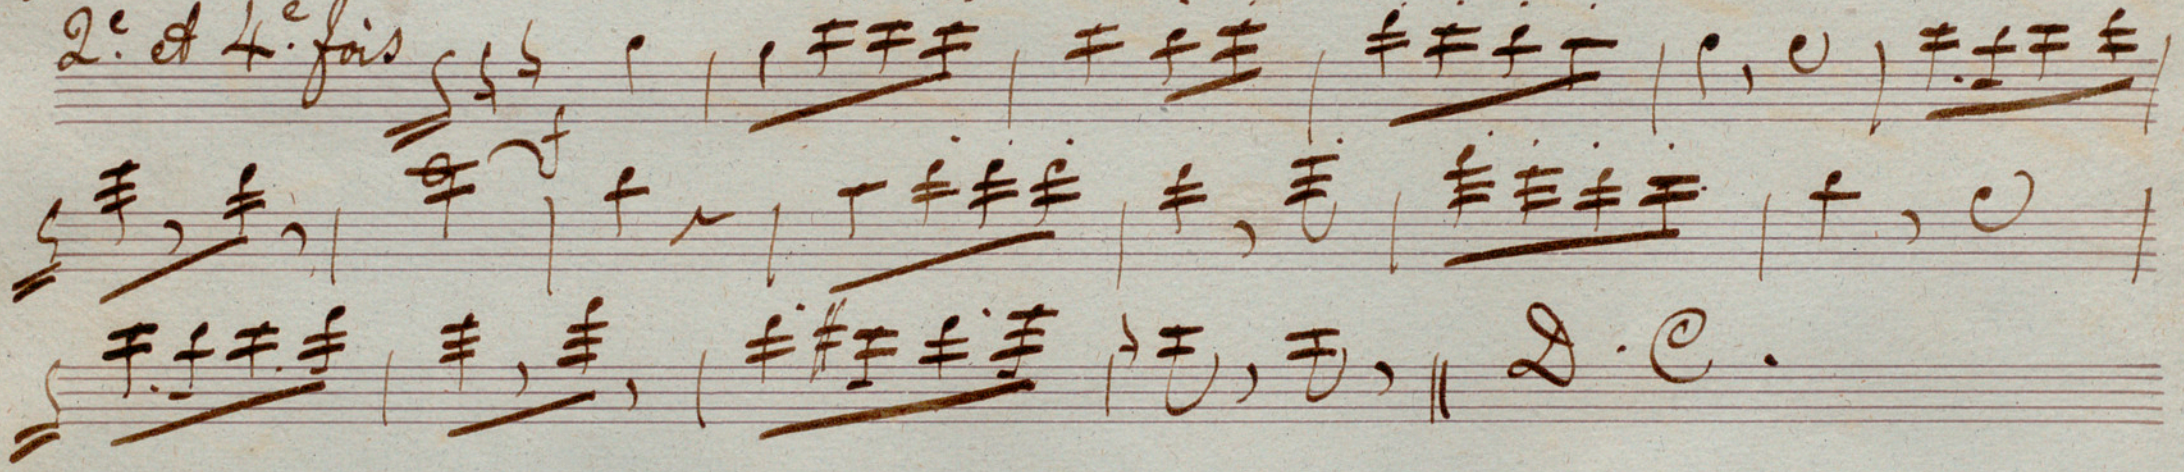 2.e et 4.e fois
f
D. C.